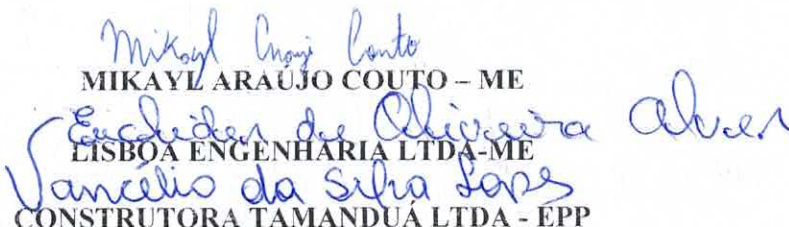 Mikayl Araujo Couto
MIKAYL ARAÚJO COUTO – ME
Euclides de Oliveira Alves
LISBOA ENGENHARIA LTDA-ME
Vancélio da Silva Lopes
CONSTRUTORA TAMANDUÁ LTDA - EPP